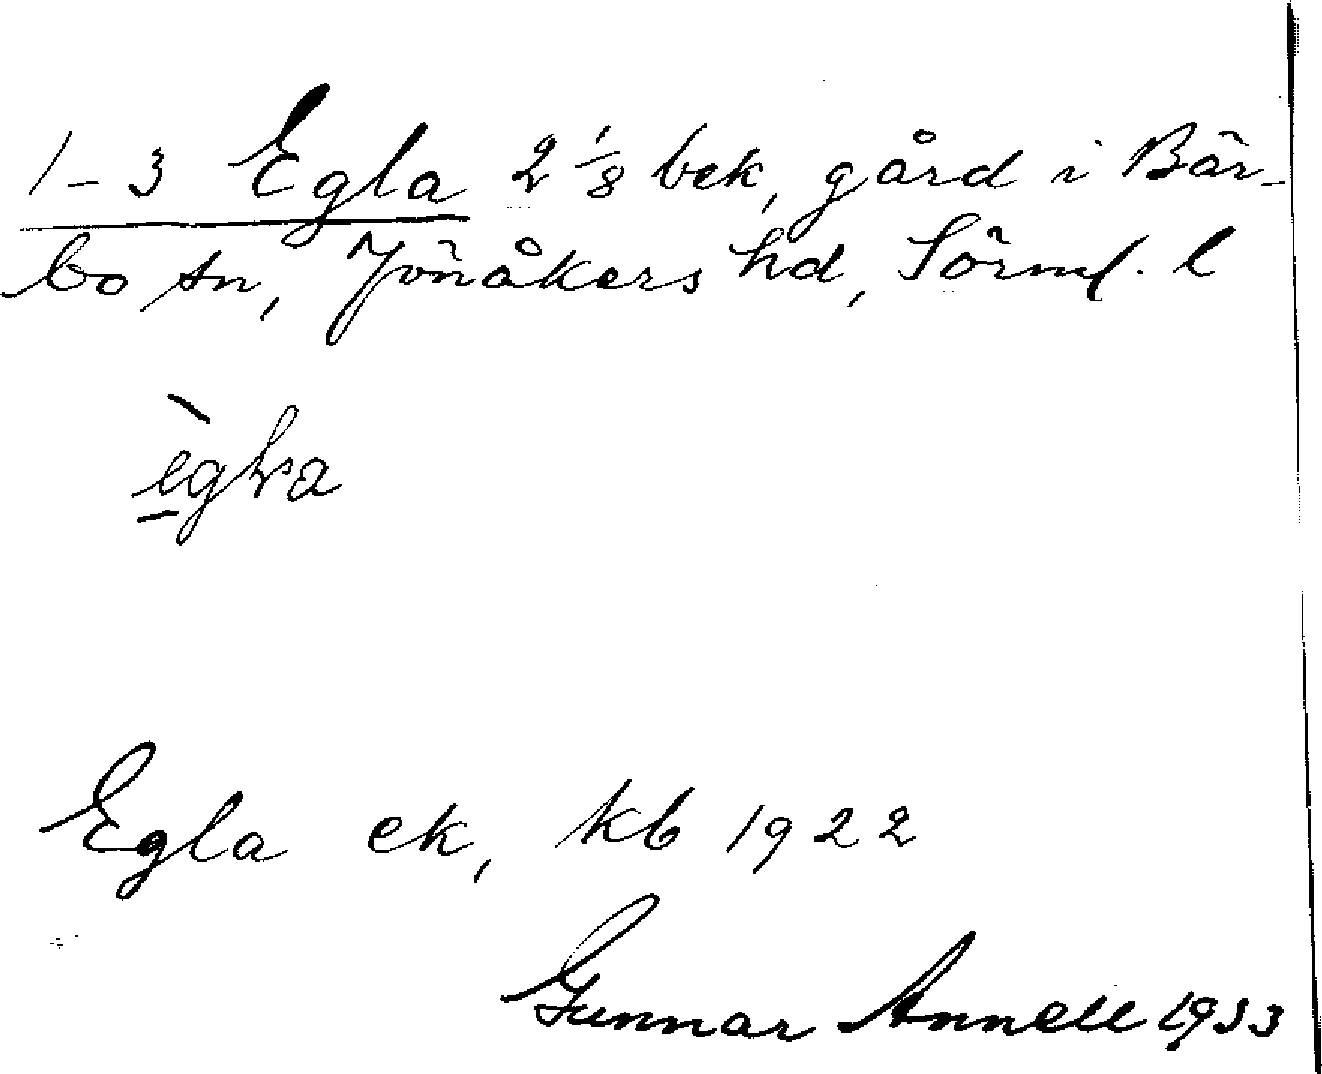 1-3 Egla 2 1/8 bek, gård i Bär-
bo sn, Jönåkers hd, Sörml. l
Egla ek, kb 1922
Gunnar Annell 1933